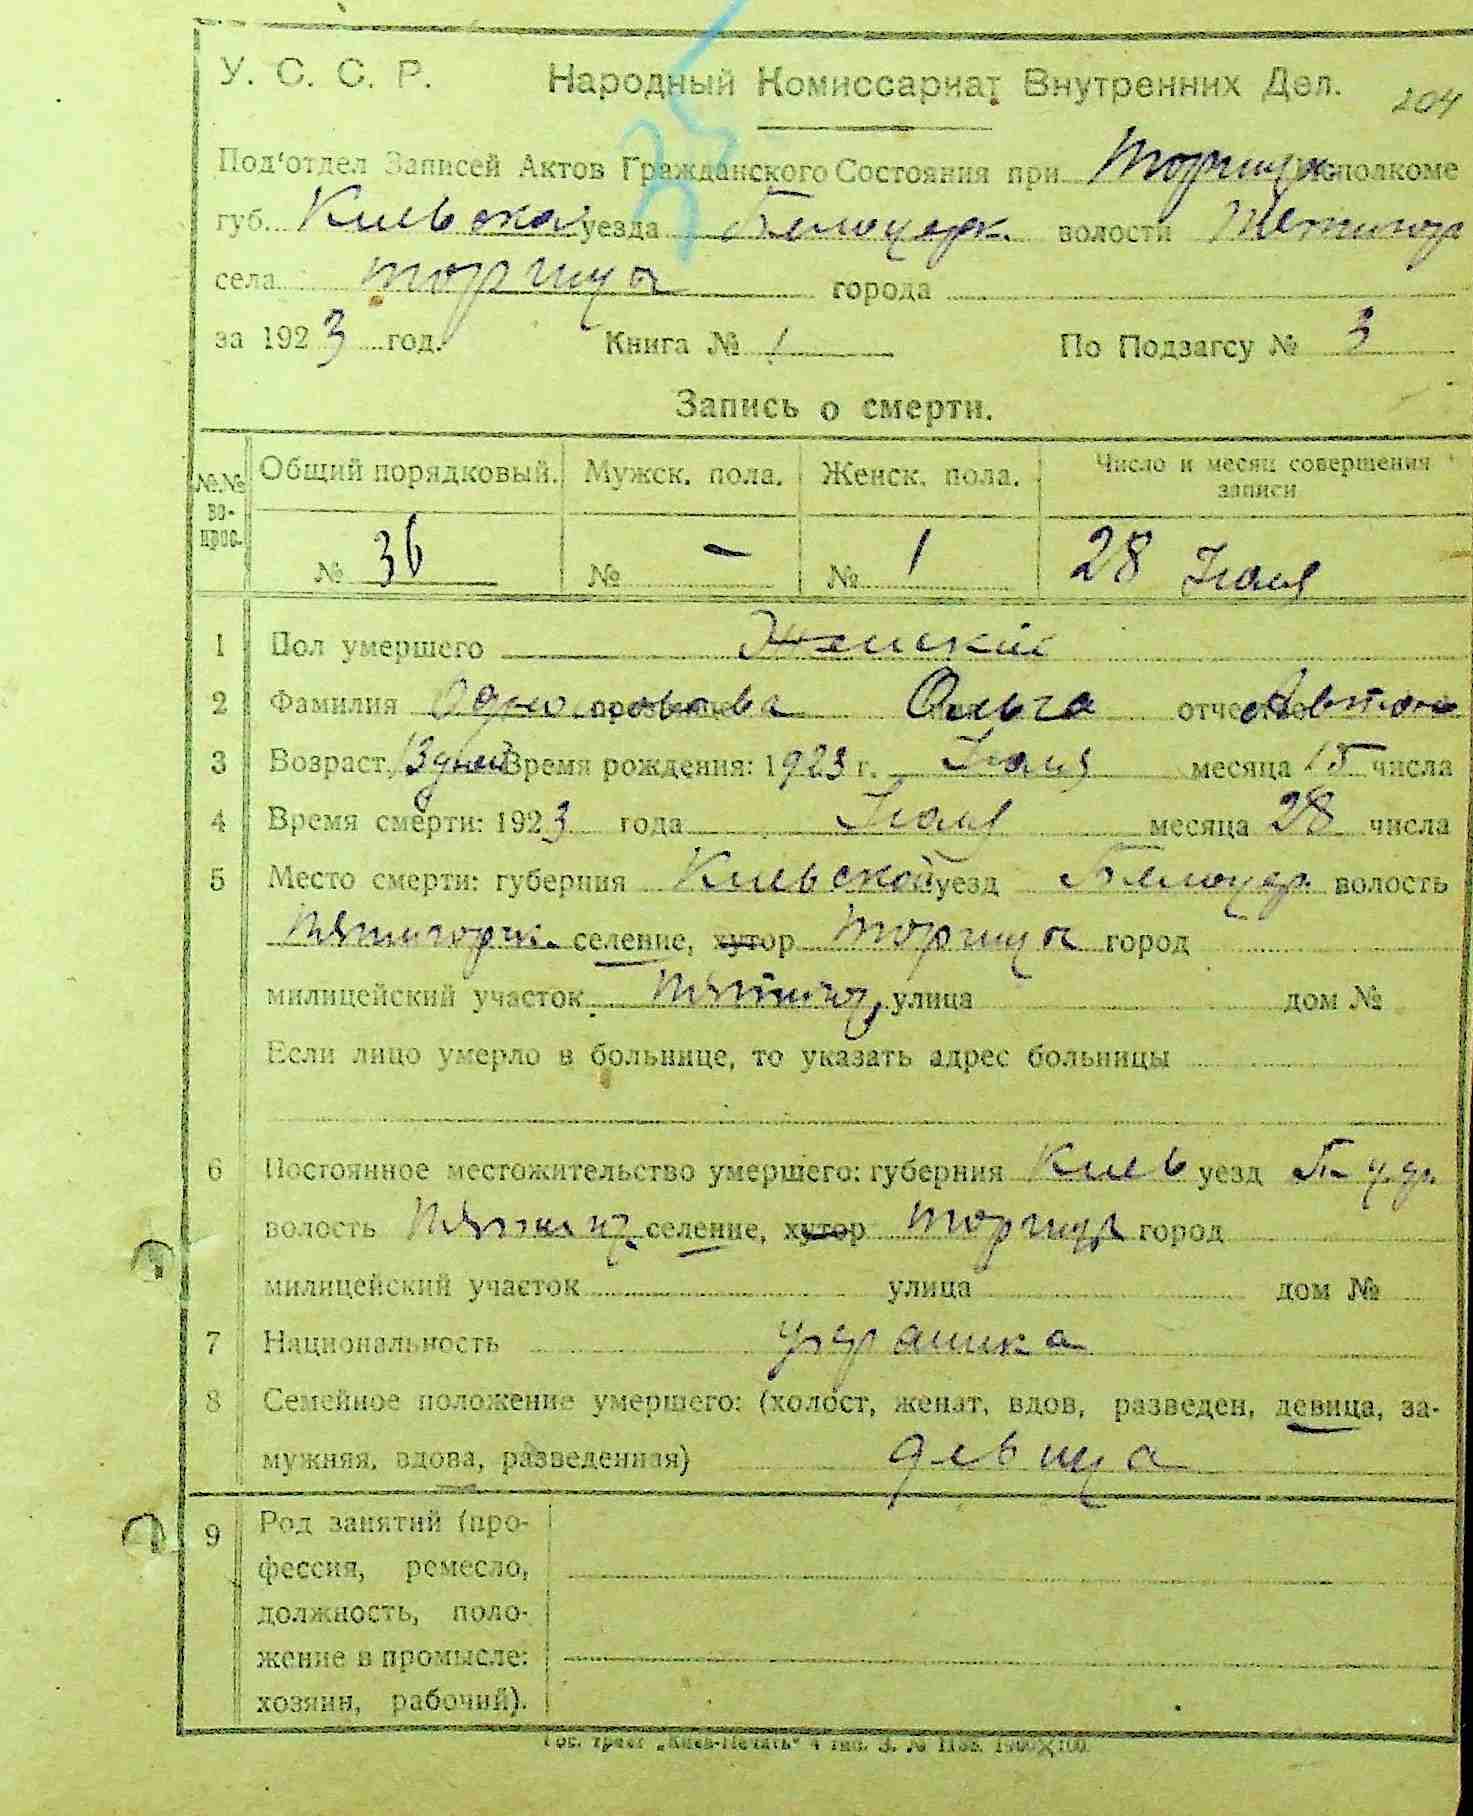 У. С. С. Р. Народный Комиссариат Внутренних Дел. 204
Под'отдел Записей Актов Гражданского Состояния при Торчиця Исполкоме
губ. Киевской уезда Белоцерк. волости Пятигор
села Торчица города
за 1923 год. Книга № 1 По Подзагсу № 3
Запись о смерти.
№№ вопрос. Общий порядковый. Мужск. пола. Женск. пола. Число и месяц совершения записи
№ 36 № – № 1 28 Июля
1 Пол умершего Женский
2 Фамилия прозвище Ольга отчество
3 Возраст 13 дней Время рождения: 1923 г. Июля месяца 15 числа
4 Время смерти: 1923 года Июля месяца 28 числа
5 Место смерти: губерния Киевской уезд Белоцер. волость
Пятигорск. селение, хутор Торчица город
милицейский участок Пятигор, улица дом №
Если лицо умерло в больнице, то указать адрес больницы
6 Постоянное местожительство умершего: губерния Киев уезд
волость селение, хутор Торчиця город
милицейский участок улица дом №
7 Национальность украинка
8 Семейное положение умершего: (холост, женат, вдов, разведен, девица, за-
мужняя, вдова, разведенная) девица
9 Род занятий (про-
фессия, ремесло,
должность, поло-
жение в промысле:
хозяин, рабочий).
Гос. трест „Киев-Печать“ 4 тип. З. №